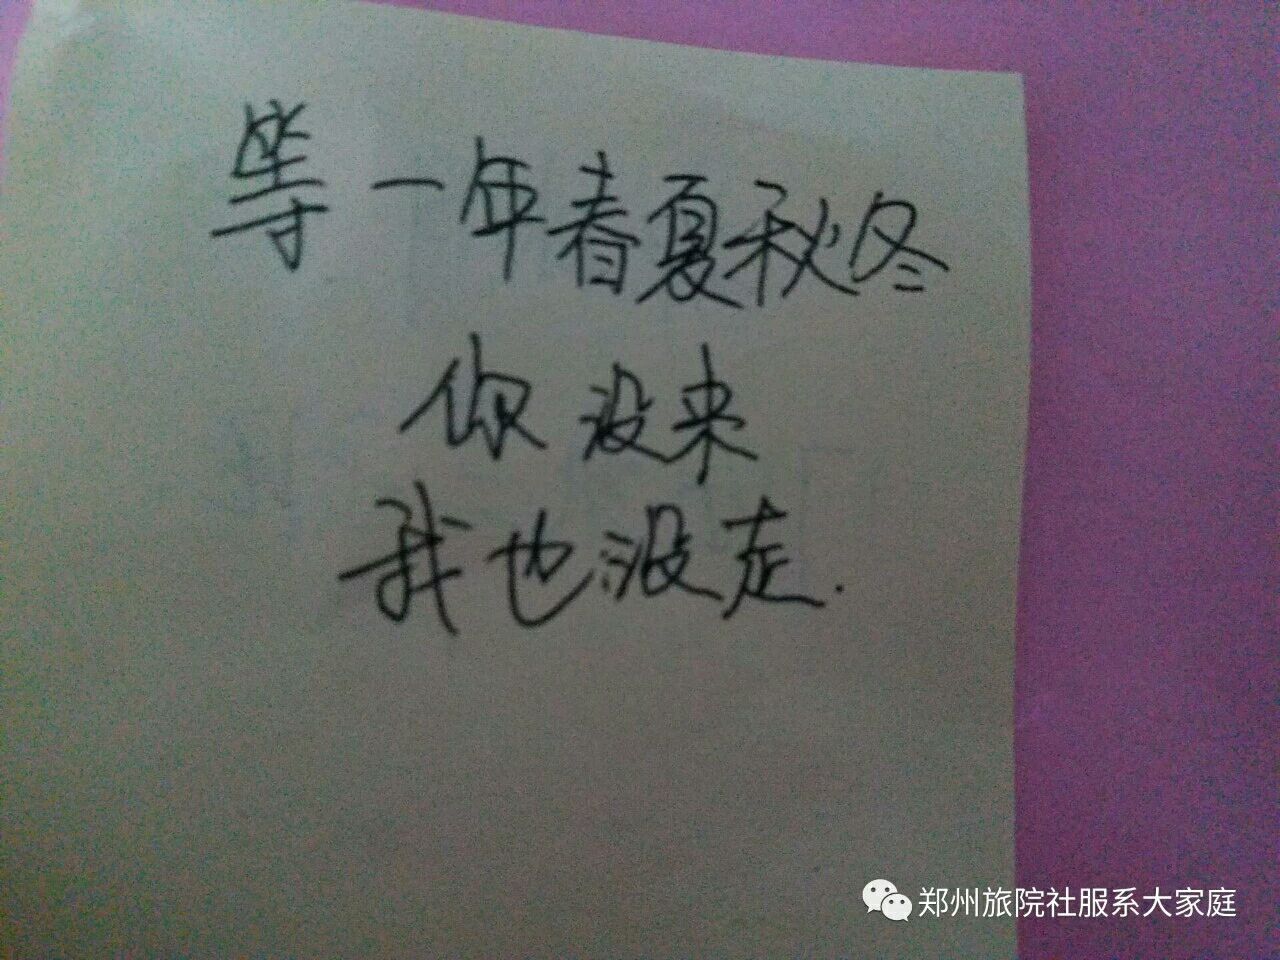 等一年春夏秋冬
你没来
我也没走.
郑州旅院社服系大家庭